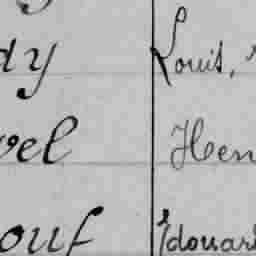 dy Louis,
vel Hen
ouf Édouar